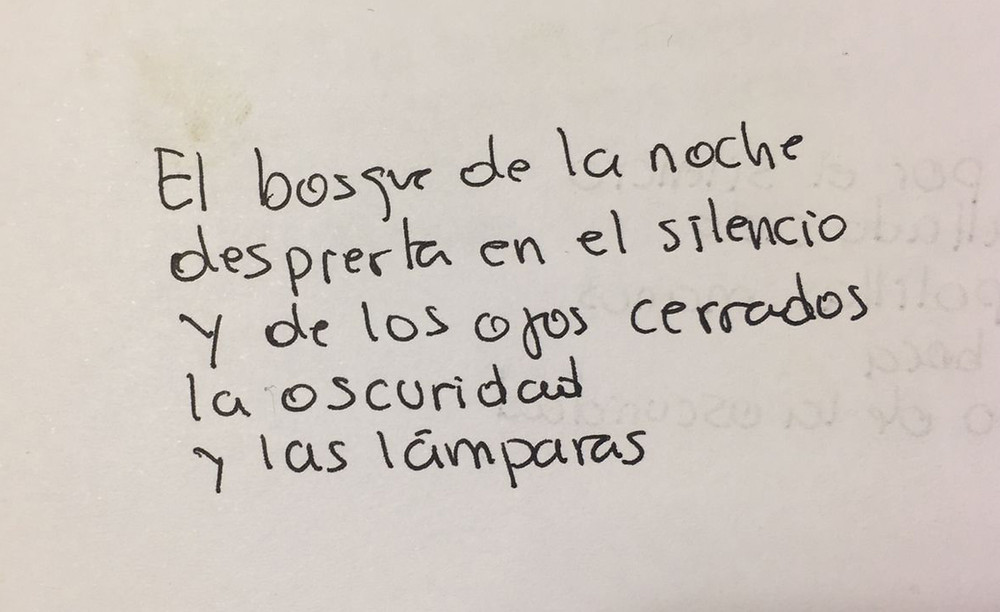 El bosque de la noche
desprerta en el silencio
y de los ojos cerrados
la oscuridad
y las lámparas